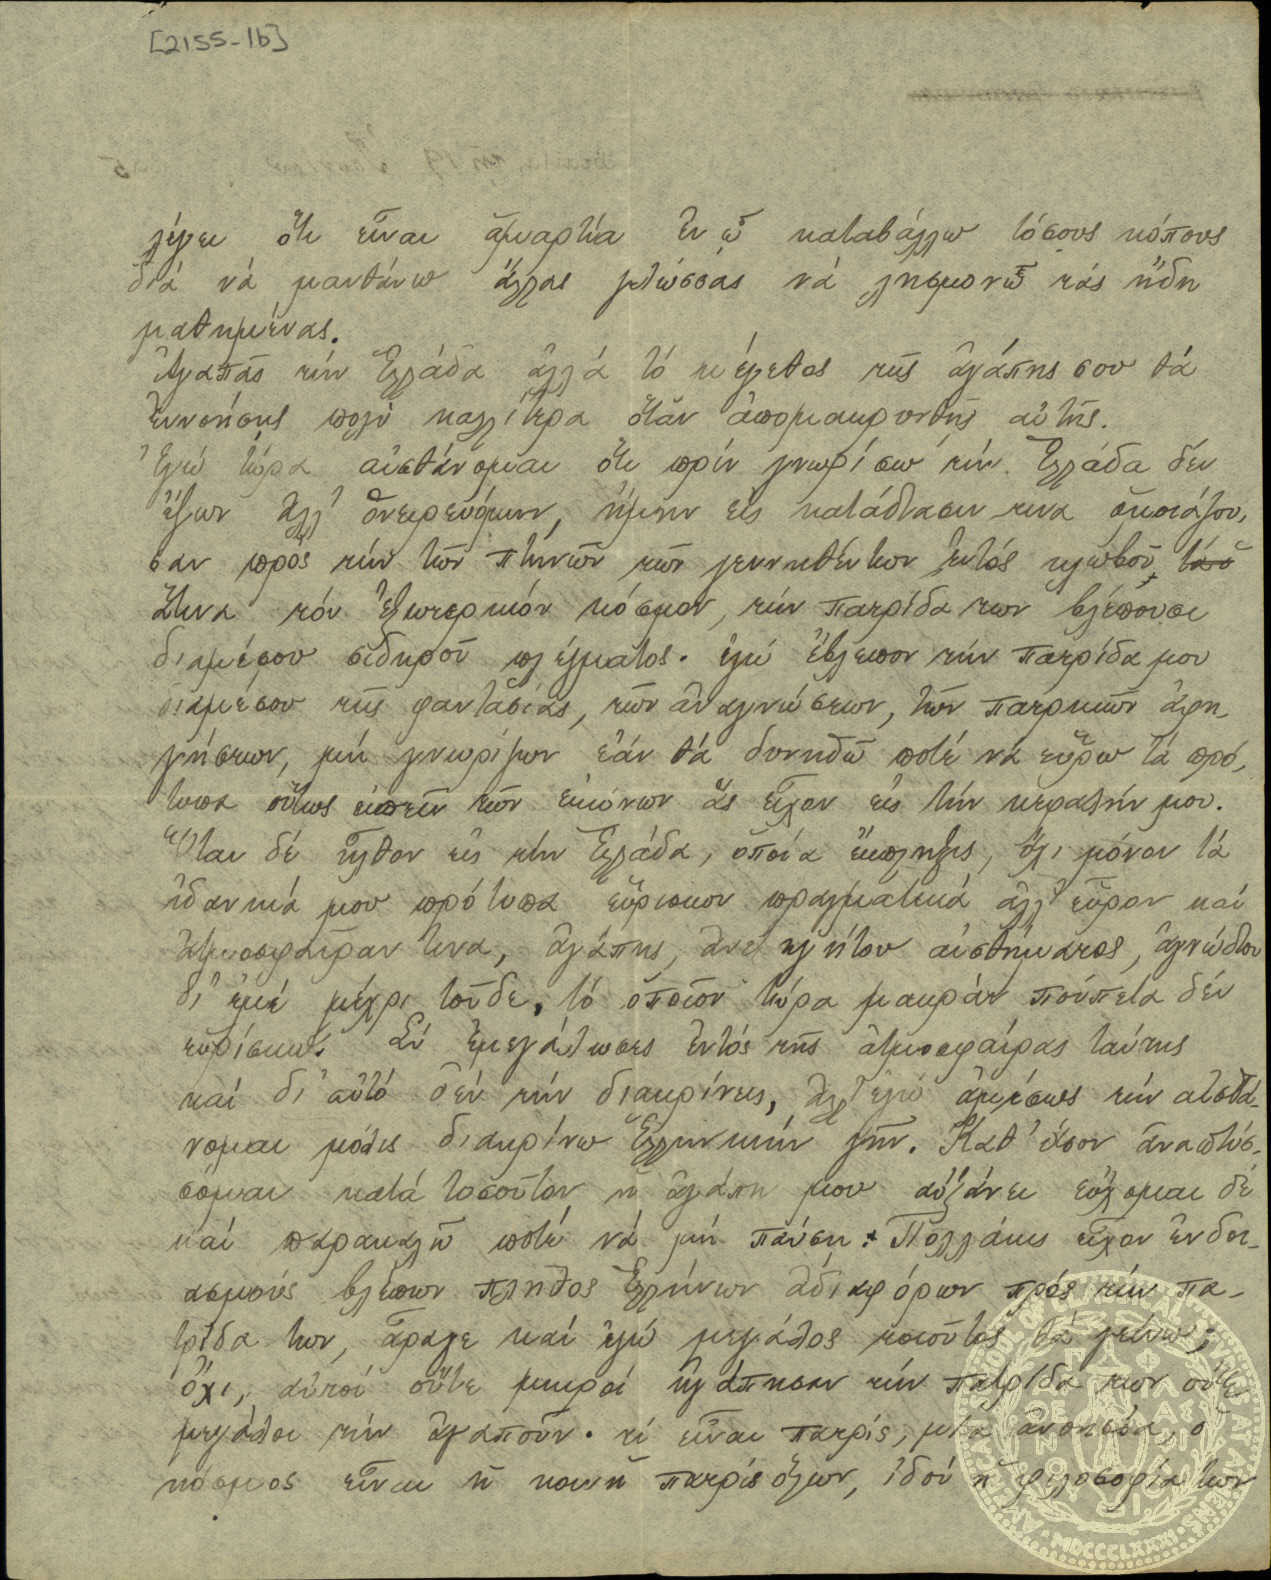 [2155-1b]
λέγει ὅτι εἶναι ἁμαρτία ἐν ᾧ καταβάλλω τόσους κόπους
διά νά μανθάνω ἄλλας γλώσσας νά λησμονῶ τάς ἤδη
μαθημένας.
Ἀγαπᾷς τήν Ἑλλάδα ἀλλά τό μέγεθος τῆς ἀγάπης σου θά
ἐννοήσῃς πολύ καλλίτερα ὅταν ἀπομακρυνθῇς αὐτῆς.
Ἐγώ τώρα αἰσθάνομαι ὅτι πρίν γνωρίσω τήν Ἑλλάδα δέν
ἔζων ἀλλ' ὀνειρευόμην, ἤμην εἰς κατάστασιν τινα ὁμοιάζου,
σαν πρός τήν τῶν πτηνῶν τῶν γεννηθέντων ἐντός κλωβοῦ,
ἅτινα τόν ἐξωτερικόν κόσμον, τήν πατρίδα των βλέπουσι
διαμέσου σιδηροῦ πλέγματος. ἐγώ ἔβλεπον τήν πατρίδα μου
διαμέσου τῆς φαντασίας, τῶν ἀναγνώσεων, τῶν πατρικῶν ἀφη
γήσεων, μή γνωρίζων ἐάν θά δυνηθῶ ποτέ νά εὕρω τά πρό,
τυπα οὕτως εἰπεῖν τῶν εἰκόνων ἅς εἶχον εἰς τήν κεφαλήν μου.
Ὅταν δέ ἦλθον εἰς τήν Ἑλλάδα, ὁποία ἔκπληξις, ὄχι μόνον τά
ἰδανικά μου πρότυπα εὕρισκον πραγματικά ἀλλ' εὗρον καί
ἀτμοσφαῖραν τινα, ἀγάπης, ἀνεξηγήτου αἰσθήματος, ἀγνώστου
δι' ἐμέ μέχρι τοῦδε, τό ὁποῖον τώρα μακράν πούπετα δέν
εὑρίσκω. Σύ ἐμεγάλωσες ἐντός τῆς ἀτμοσφαίρας ταύτης
καί δι' αὐτό δέν τήν διακρίνεις, ἀλλ' ἐγώ ἀμέσως τήν αἰσθά-
νομαι μόλις διακρίνω Ἑλληνικήν γῆν. Καθ' ὅσον ἀναπτύσ-
σομαι κατά τοσοῦτον ἡ ἀγάπη μου αὐξάνει εὔχομαι δέ
καί παρακαλῶ ποτέ νά μή παύσῃ. Πολλάκις εἶχον ἐνδοι-
ασμούς βλέπων πλῆθος Ἑλλήνων ἀδιαφόρων πρός τήν πα-
τρίδα των, ἆραγε καί ἐγώ μεγάλος τοιοῦτος θά γείνω;
ὄχι, αὐτοί οὔτε μικροί ἠγάπησαν τήν πατρίδα των οὔτε
μεγάλοι τήν ἀγαποῦν. τί εἶναι πατρίς, μία ἀνοησία, ὁ
κόσμος εἶναι ἡ κοινή πατρίς ὅλων, ἰδού ἡ φιλοσοφία των